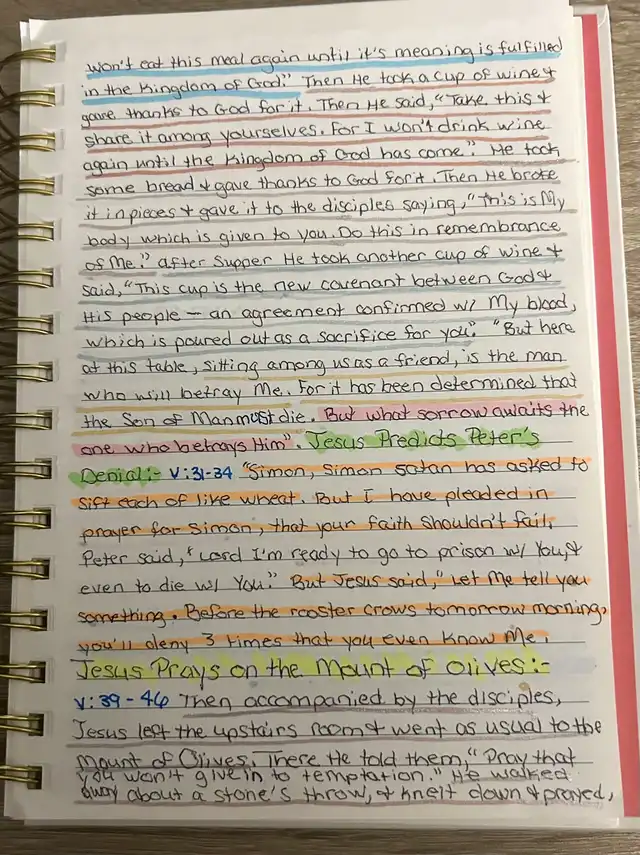 won't eat this meal again until it's meaning is fulfilled
in the Kingdom of God." Then He took a cup of wine &
gave thanks to God for it. Then He said, "Take this &
share it among yourselves. For I won't drink wine
again until the Kingdom of God has come." He took
some bread & gave thanks to God for it. Then He broke
it in pieces & gave it to the disciples saying, "This is My
body which is given to you. Do this in remembrance
of Me." after supper He took another cup of wine &
said, "This cup is the new covenant between God &
His people — an agreement confirmed w/ My blood,
which is poured out as a sacrifice for you." "But here
at this table, sitting among us as a friend, is the man
who will betray Me. For it has been determined that
the Son of Man must die. But what sorrow awaits the
one who betrays Him". Jesus Predicts Peter's
Denial:- V:31-34 "Simon, Simon Satan has asked to
sift each of like wheat. But I have pleaded in
prayer for Simon, that your faith shouldn't fail,
Peter said, "Lord I'm ready to go to prison w/ You, &
even to die w/ You." But Jesus said, "Let Me tell you
something. Before the rooster crows tomorrow morning,
you'll deny 3 times that you even know Me.
Jesus Prays on the Mount of Olives:-
V:39-46 Then accompanied by the disciples,
Jesus left the upstairs room & went as usual to the
Mount of Olives. There He told them, "Pray that
you won't give in to temptation." He walked
away about a stone's throw, & knelt down & prayed,